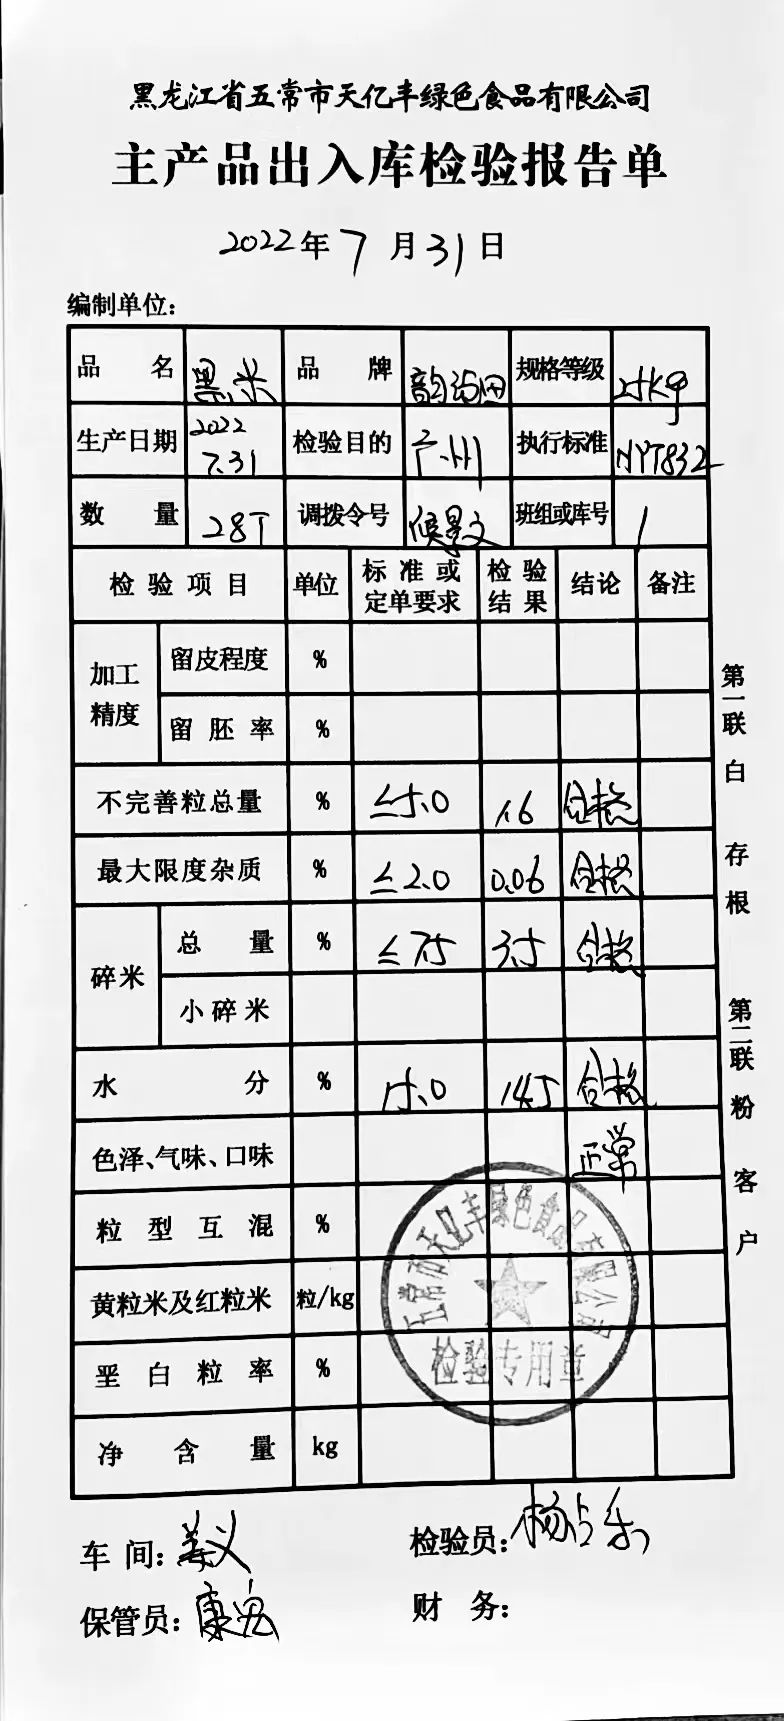 黑龙江省五常市天亿丰绿色食品有限公司
主产品出入库检验报告单
2022年7月31日
编制单位：
品名 黑米 品牌 规格等级
生产日期 2022 7.31 检验目的 广州 执行标准 NYT832
数量 28T 调拨令号 候景文 班组或库号 1
检验项目 单位 标准或定单要求 检验结果 结论 备注
加工精度 留皮程度 %
留胚率 %
不完善粒总量 % ≤5.0 1.6 合格
最大限度杂质 % ≤2.0 0.06 合格
碎米 总量 % ≤7.5 3.5 合格
小碎米
水分 % 15.0 14.5 合格
色泽、气味、口味 正常
粒型互混 %
黄粒米及红粒米 粒/kg
垩白粒率 %
净含量 kg
五常市天亿丰绿色食品有限公司
检验专用章
车间：姜义 检验员：杨占东
保管员：康宏 财务：
第一联白 存根 第二联粉 客户